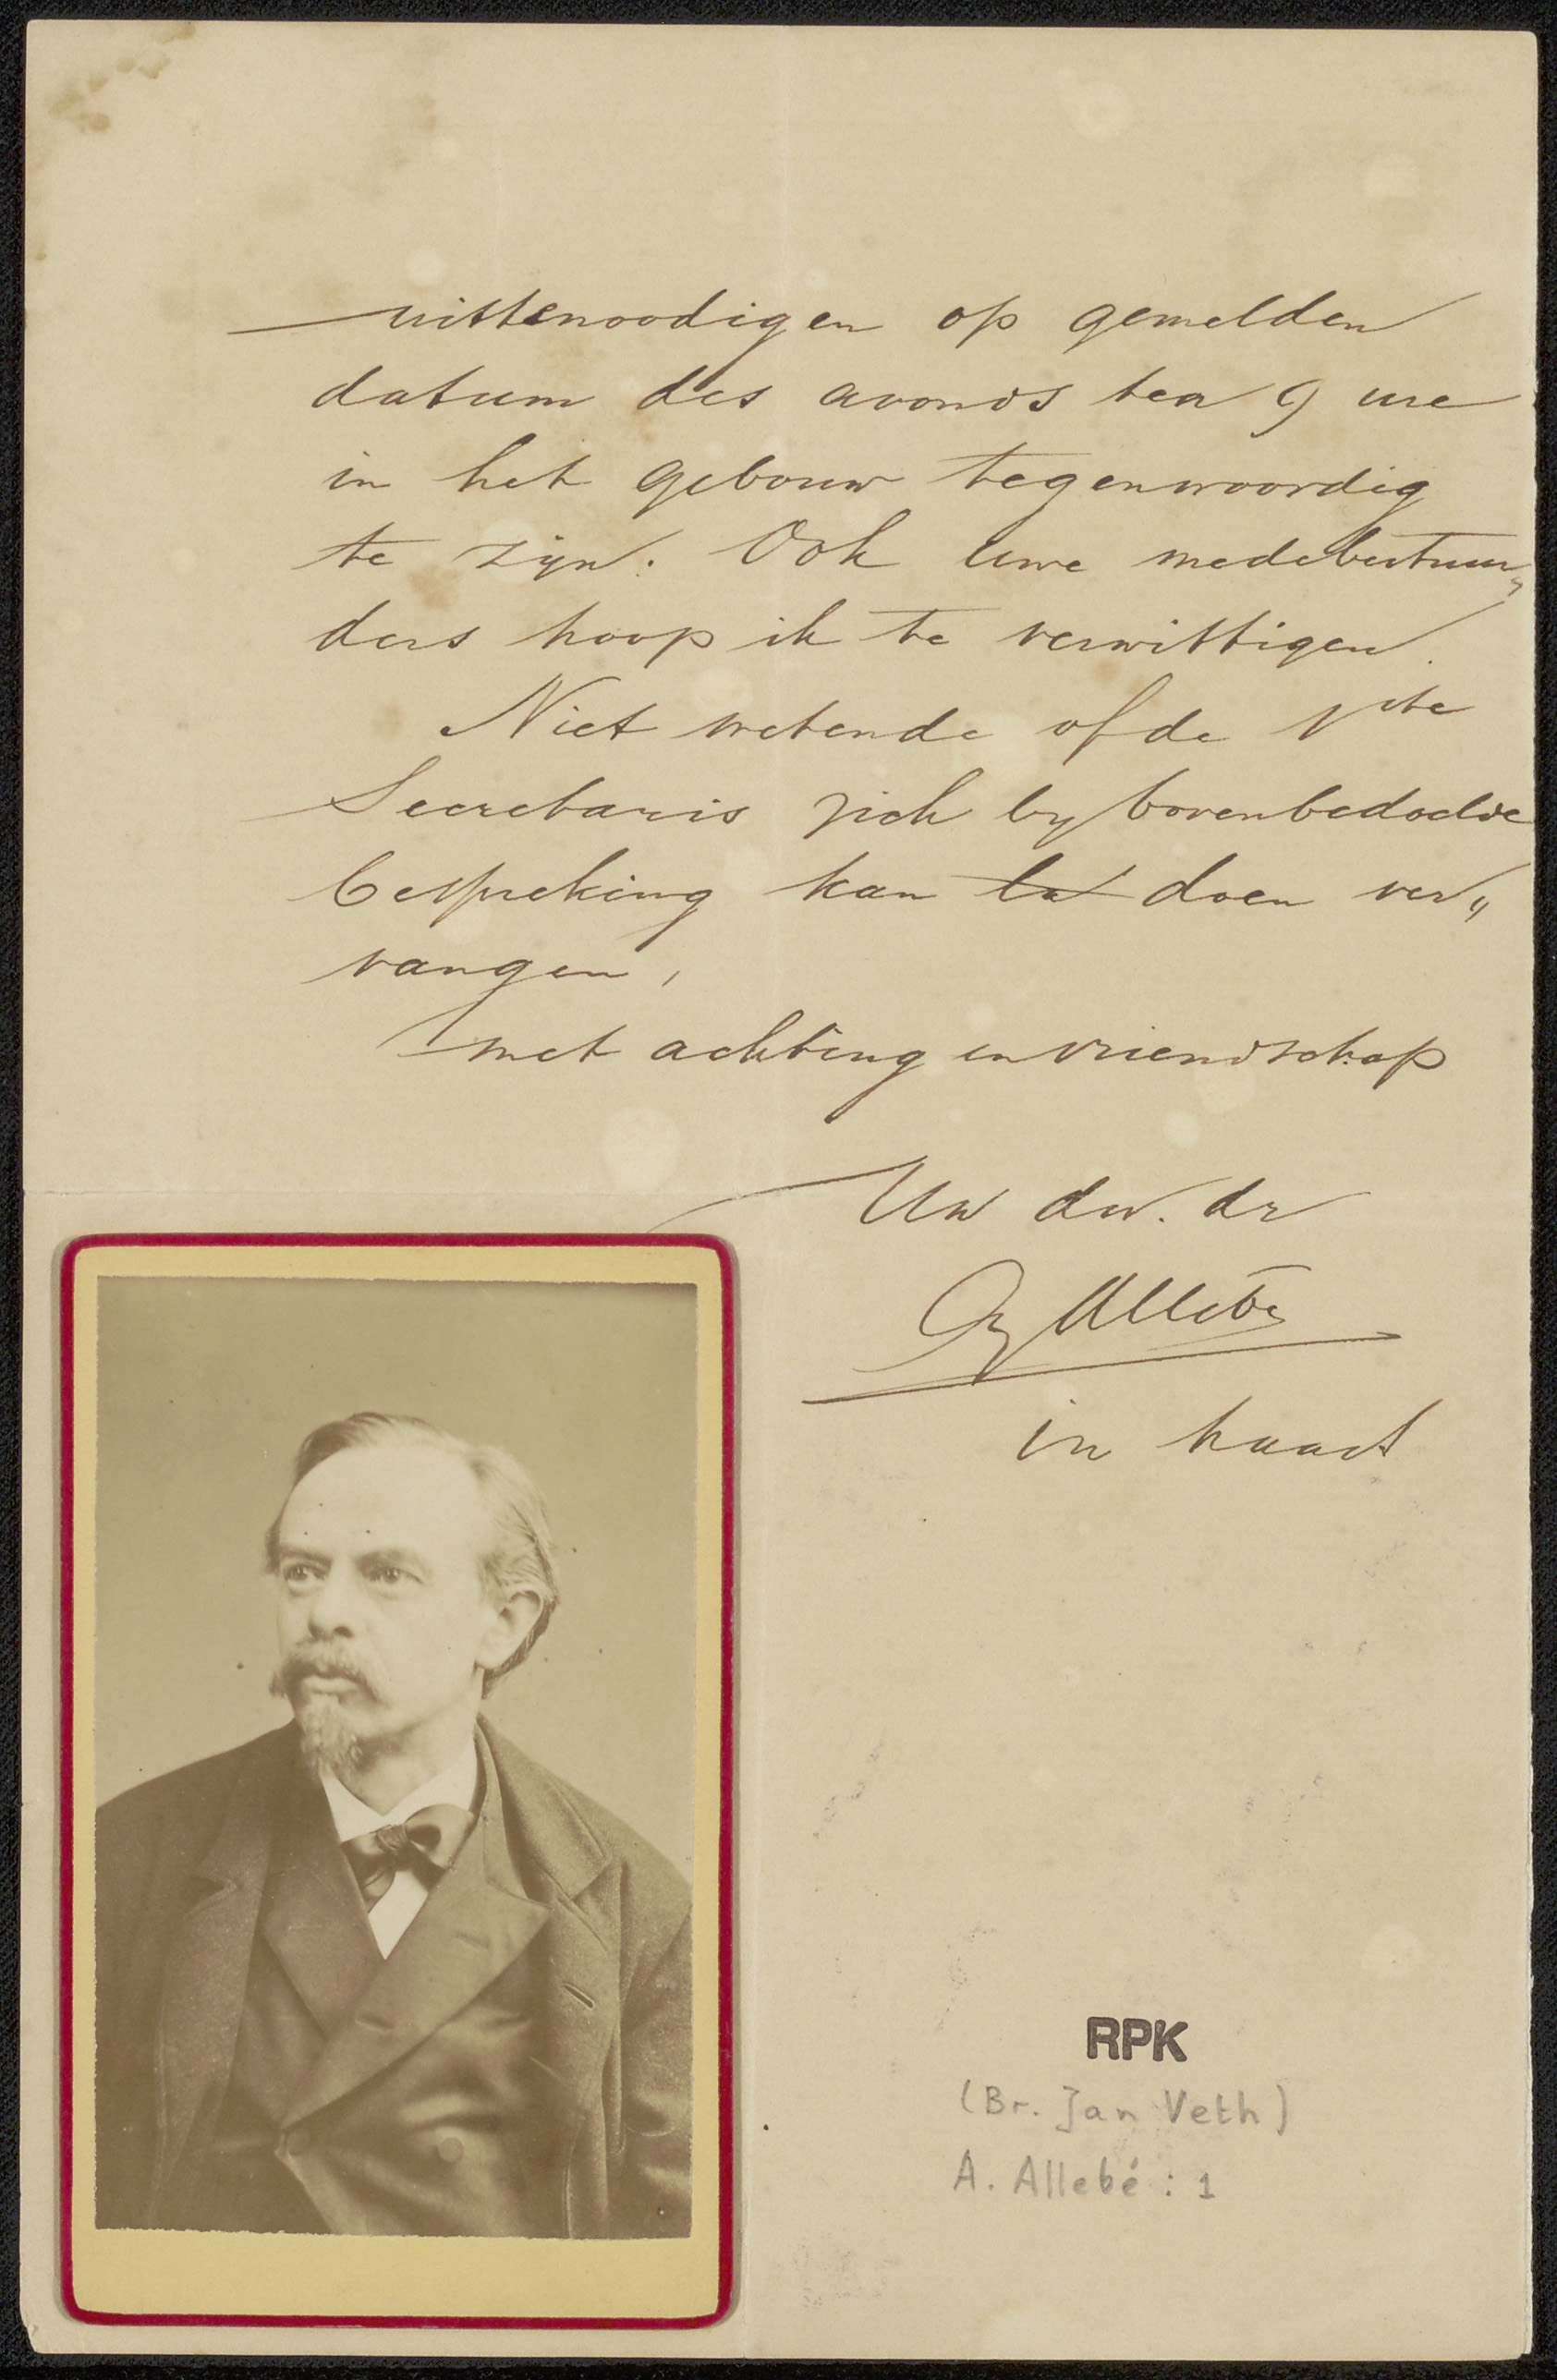 uittenoodigen op gemelden
datum des avonds ten 9 ure
in het gebouw tegenwoordig
te zijn. Ook uwe medebestuur„
ders hoop ik te verwittigen.
Niet wetende of de 1ste
Secretaris zich by bovenbedoelde
bespreking kan la doen ver„
vangen,
met achting en vriendschap
Uw dw. dr
Allebé
in haast
RPK
(Br. Jan Veth)
A. Allebé : 1